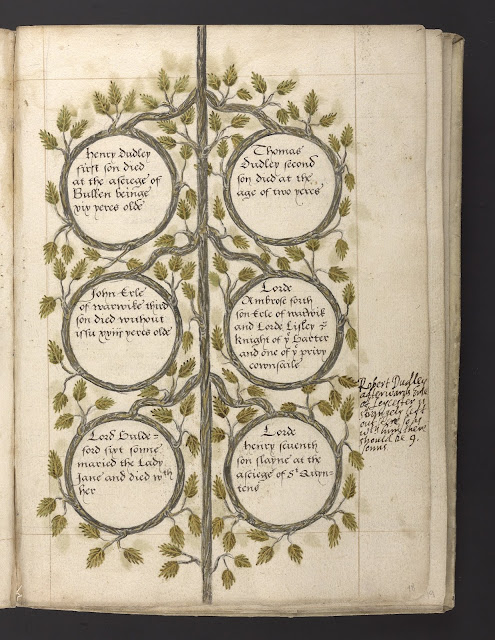 Henry Dudley
first son died
at the asciege of
Bullen beinge
xix yeres olde
Thomas
Dudley second
son died at the
age of two yeres
John Erle
of warwike third
son died without
issu xxiiij yeres olde
Lorde
Ambrose forth
son Erle of warwik
and Lorde Lisley yͤ
knight of yͤ Garter
and one of yͤ privy
cownsaile
Lord Gulde=
ford sixt sonne
maried the Lady
Jane and died wᵗʰ
her
Lorde
henry seventh
son slayne at the
asciege of Sᵗ Quyn=
tens
Robert Dudley
afterwards Erle
of Leycester is
left
out here
wᵗʰ him there
should be 9.
sonns.
18